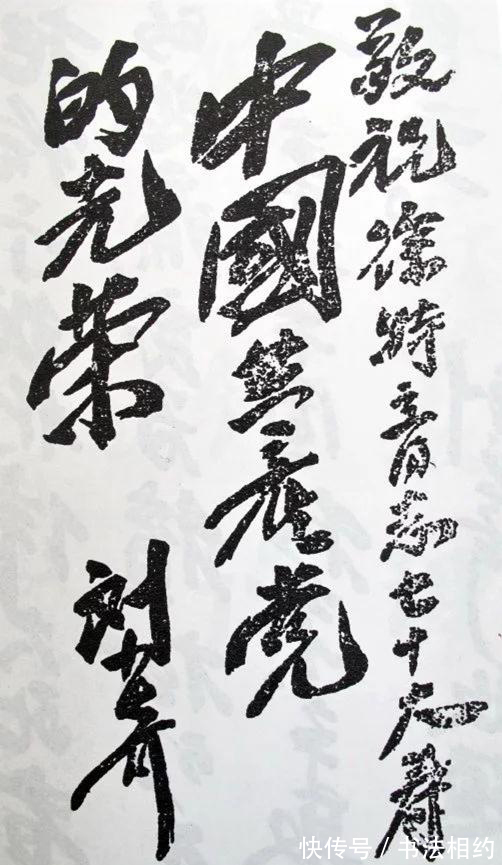 敬祝徐特立同志七十大寿
中國共产党
的光荣
刘少奇
快传号 / 书法相约